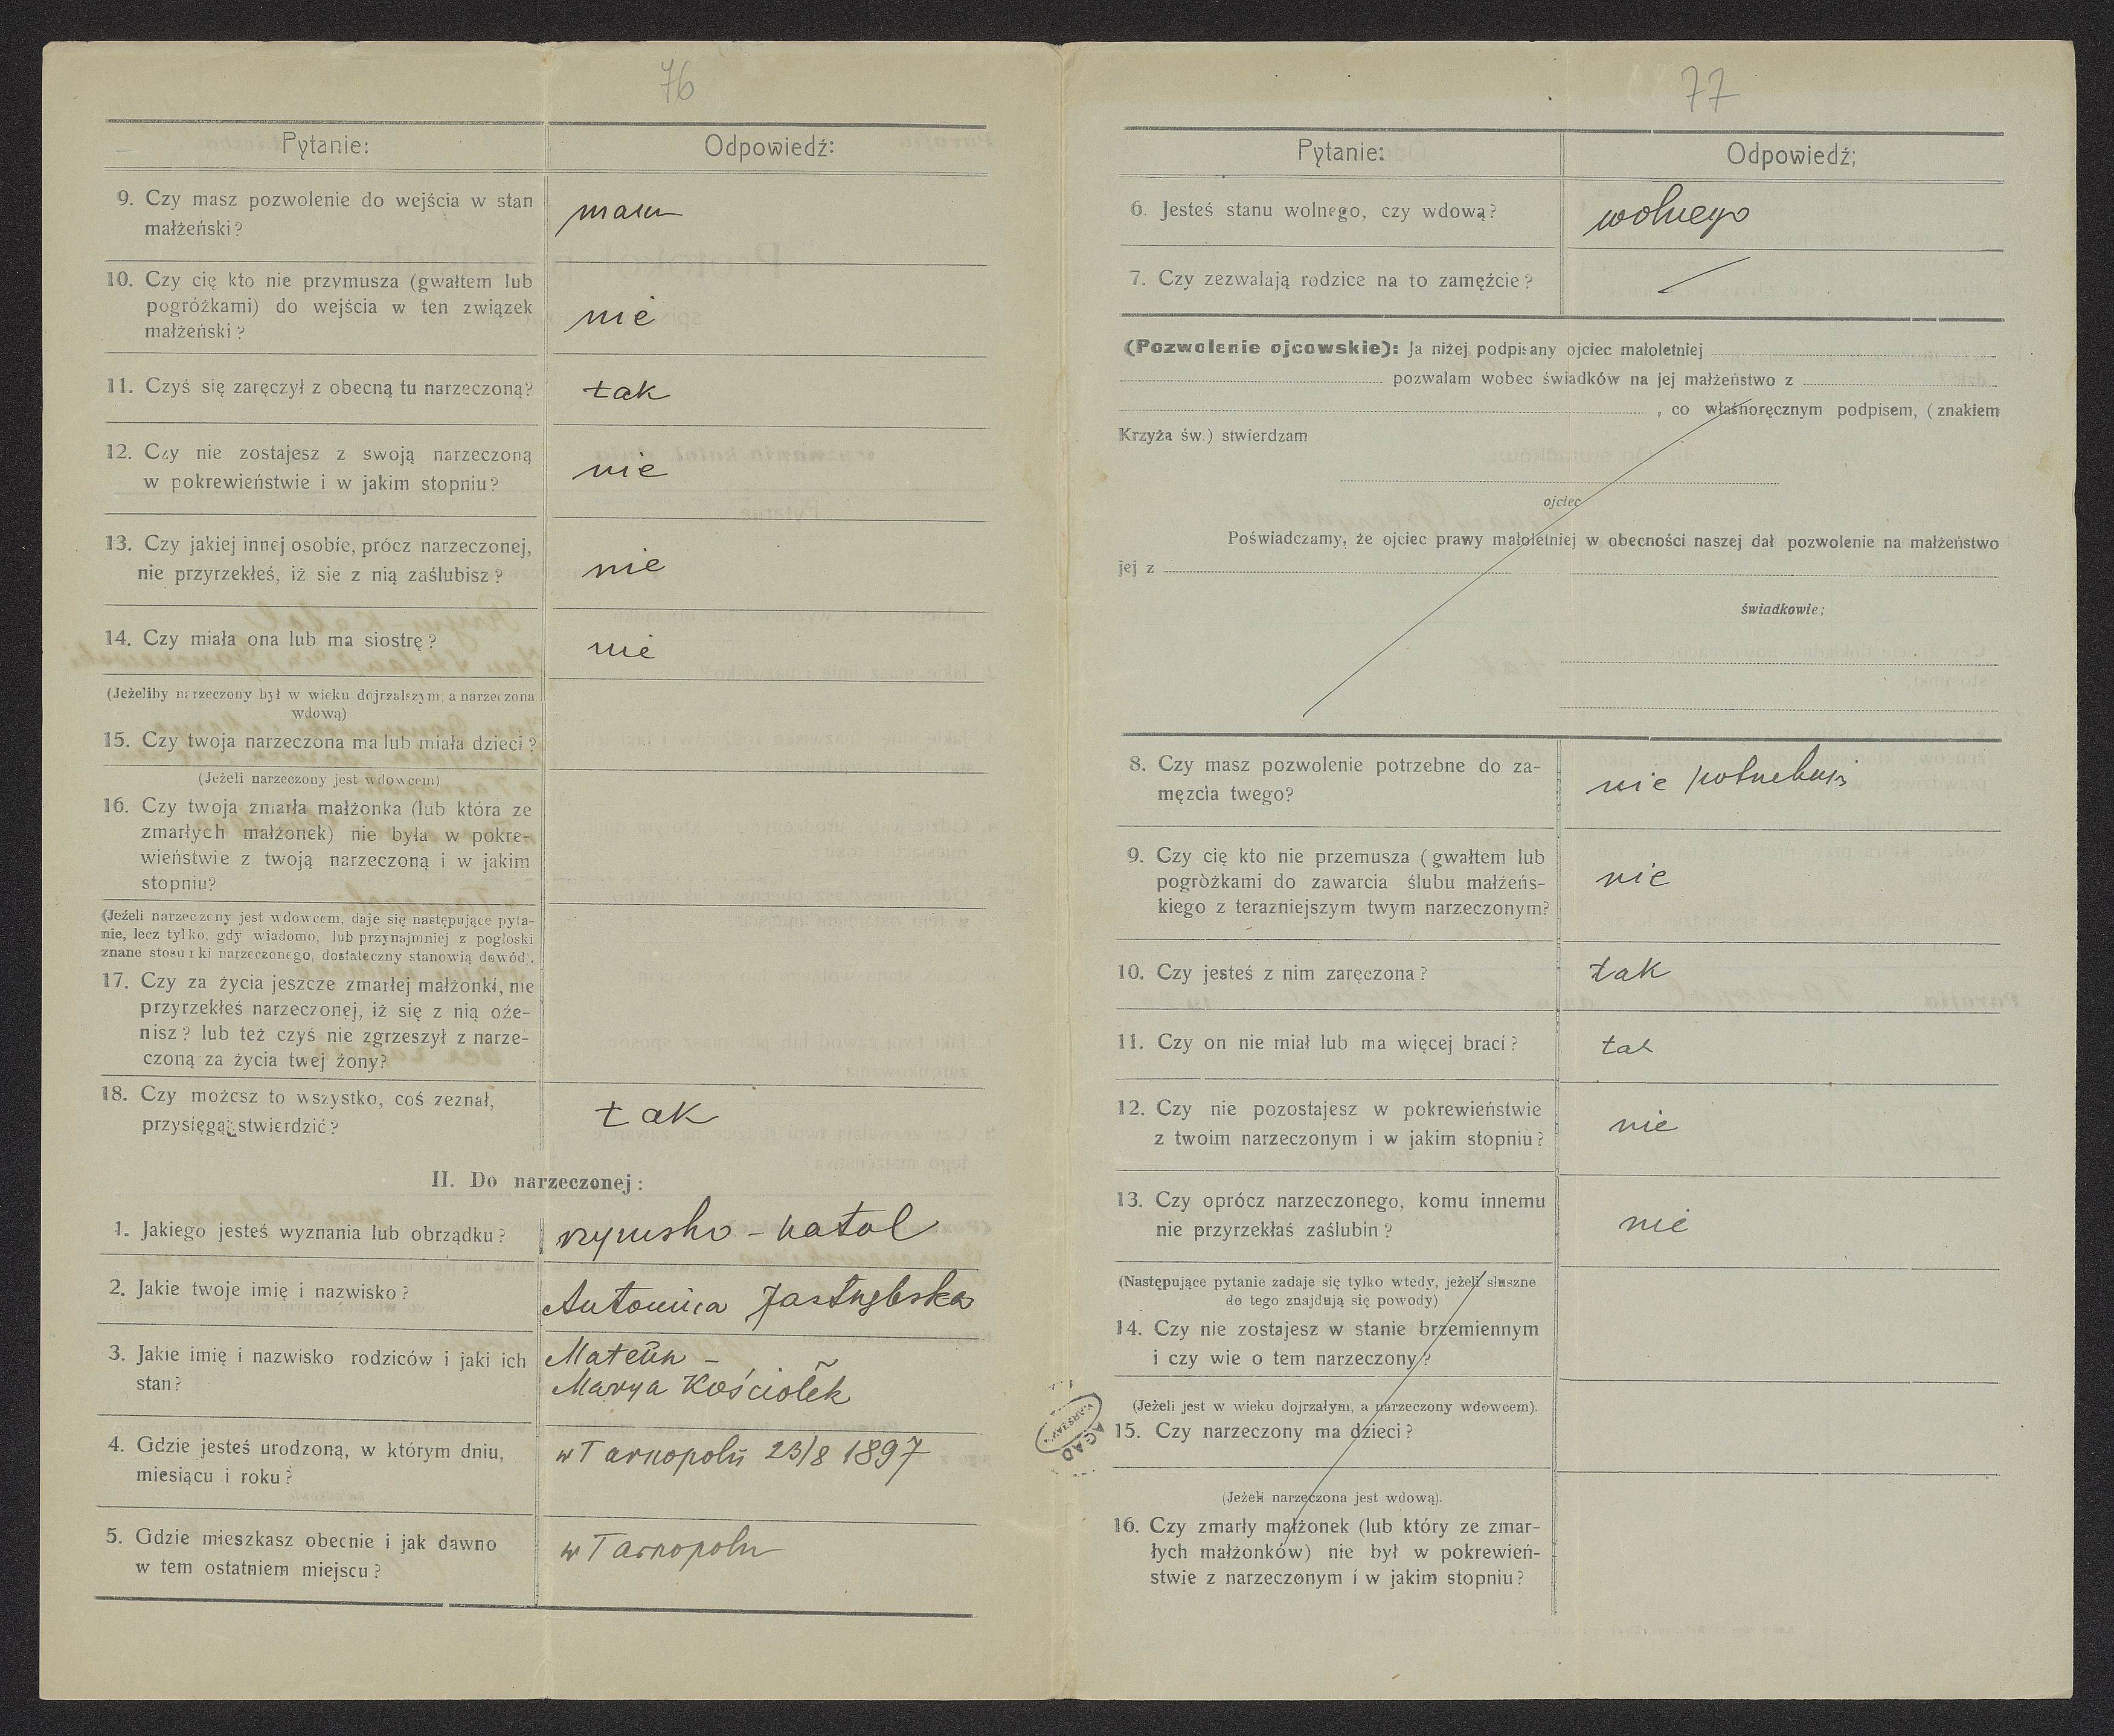 76
Pytanie:
Odpowiedź:
9. Czy masz pozwolenie do wejścia w stan
małżeński?
mam
10. Czy cię kto nie przymusza (gwałtem lub
pogróżkami) do wejścia w ten związek
małżeński?
nie
11. Czyś się zaręczył z obecną tu narzeczoną?
tak
12. Czy nie zostajesz z swoją narzeczoną
w pokrewieństwie i w jakim stopniu?
nie
13. Czy jakiej innej osobie, prócz narzeczonej,
nie przyrzekłeś, iż sie z nią zaślubisz?
nie
14. Czy miała ona lub ma siostrę?
nie
(Jeżeliby narzeczony był w wieku dojrzalszym, a narzeczona
wdową)
15. Czy twoja narzeczona ma lub miała dzieci?
(Jeżeli narzeczony jest wdowcem)
16. Czy twoja zmarła małżonka (lub która ze
zmarłych małżonek) nie była w pokre-
wieństwie z twoją narzeczoną i w jakim
stopniu?
(Jeżeli narzeczony jest wdowcem, daje się następujące pyta-
nie, lecz tylko, gdy wiadomo, lub przynajmniej z pogłoski
znane stosunki narzeczonego, dostateczny stanowią dowód).
17. Czy za życia jeszcze zmarłej małżonki, nie
przyrzekłeś narzeczonej, iż się z nią oże-
nisz? lub też czyś nie zgrzeszył z narze-
czoną za życia twej żony?
18. Czy możesz to wszystko, coś zeznał,
przysięgą stwierdzić?
tak
II. Do narzeczonej:
1. Jakiego jesteś wyznania lub obrządku?
rzymsko - katol
2. Jakie twoje imię i nazwisko?
Antonina Jastrzębska
3. Jakie imię i nazwisko rodziców i jaki ich
stan?
Mateŭsz -
Marya Kościołek
4. Gdzie jesteś urodzoną, w którym dniu,
miesiącu i roku?
w Tarnopolŭ 23/8 1897
5. Gdzie mieszkasz obecnie i jak dawno
w tem ostatniem miejscu?
w Tarnopolu
77
Pytanie:
Odpowiedź;
6. Jesteś stanu wolnego, czy wdową?
wolnego
7. Czy zezwalają rodzice na to zamęźcie?
(Pozwolenie ojcowskie): Ja niżej podpisany ojciec małoletniej
pozwalam wobec świadków na jej małżeństwo z
, co własnoręcznym podpisem, (znakiem
Krzyża św.) stwierdzam
ojciec
Poświadczamy, że ojciec prawy małoletniej w obecności naszej dał pozwolenie na małżeństwo
jej z
świadkowie;
8. Czy masz pozwolenie potrzebne do za-
męzcia twego?
nie potrzebuję
9. Czy cię kto nie przemusza (gwałtem lub
pogròżkami do zawarcia ślubu małżeńs-
kiego z terazniejszym twym narzeczonym?
nie
10. Czy jesteś z nim zaręczona?
tak
11. Czy on nie miał lub ma więcej braci?
tak
12. Czy nie pozostajesz w pokrewieństwie
z twoim narzeczonym i w jakim stopniu?
nie
13. Czy oprócz narzeczonego, komu innemu
nie przyrzekłaś zaślubin?
nie
(Następujące pytanie zadaje się tylko wtedy, jeżeli słuszne
do tego znajdują się powody)
14. Czy nie zostajesz w stanie brzemiennym
i czy wie o tem narzeczony?
(Jeżeli jest w wieku dojrzałym, a narzeczony wdowcem).
15. Czy narzeczony ma dzieci?
AGAD
WARSZAWA
(Jeżeli narzeczona jest wdową).
16. Czy zmarły małżonek (lub który ze zmar-
łych małżonków) nie był w pokrewień-
stwie z narzeczonym í w jakim stopniu?